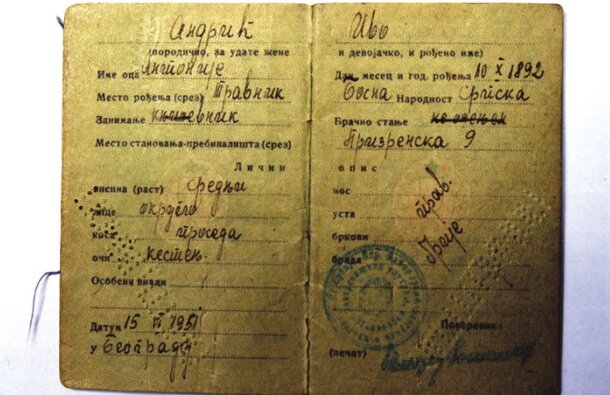 Андрић
(породично, за удате жене
Име оца Антоније
Место рођења (срез) Травник
Занимање књижевник
Место становања-пребивалишта (срез)
Лични
висина (раст) средњи
лице округло
коса проседа
очи кестењ.
Особени знаци
Датум 15 VI 1951
У Београду
Иво
и девојачко, и рођено име)
Дан месец и год. рођења 10 X 1892
Босна Народност Српска
Брачно стање неожењен
Призренска 9
опис
нос прав.
уста
бркови брије
брада
Повереник:
(печат)